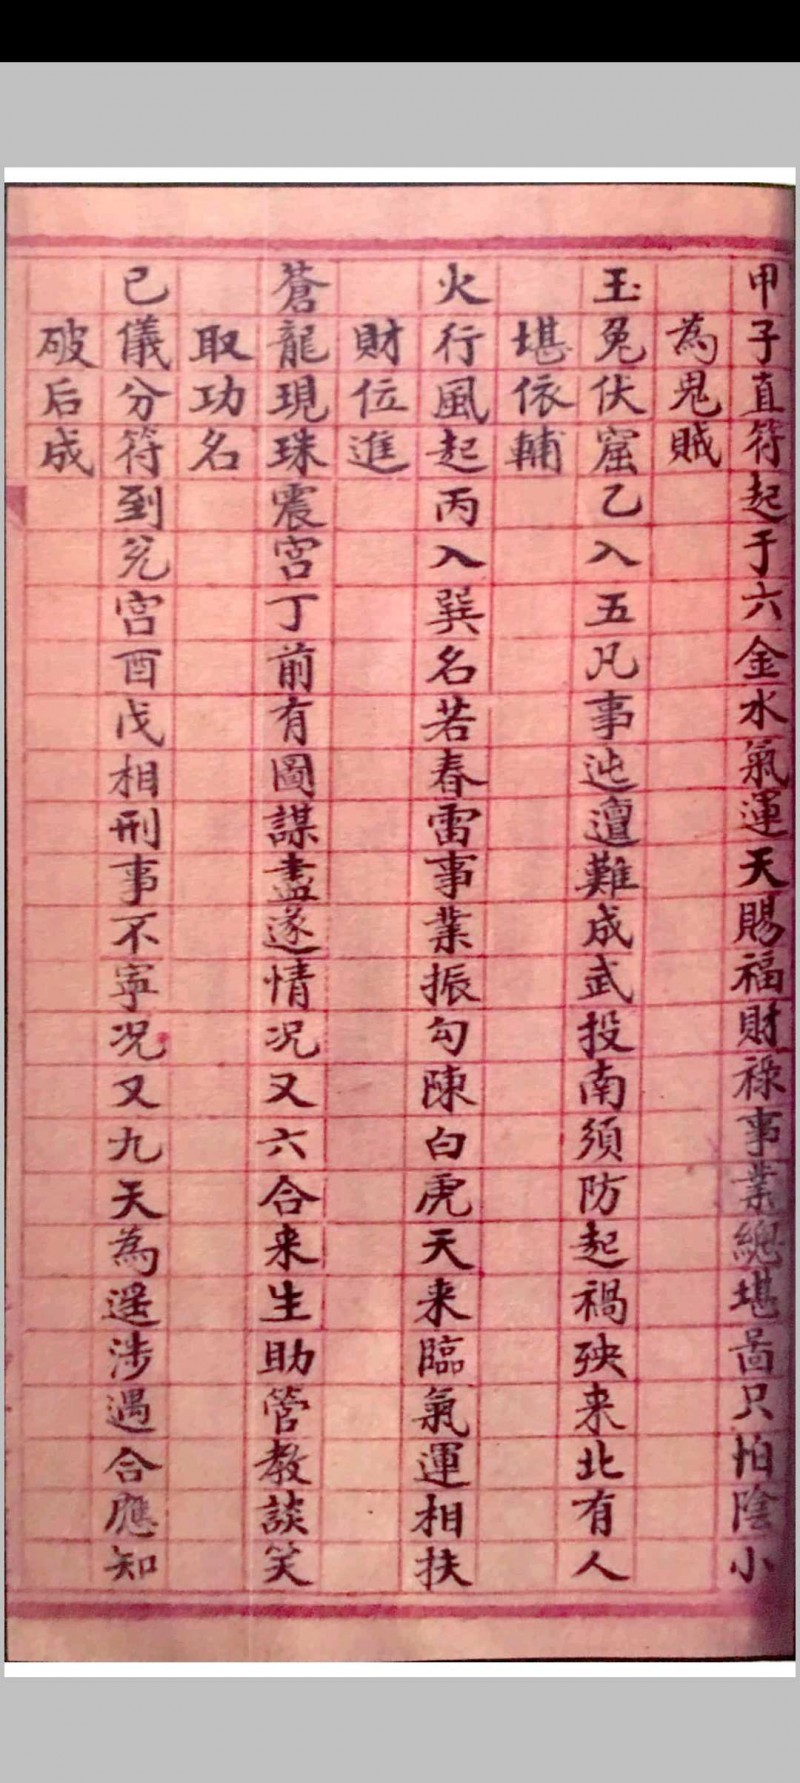 甲子直符起于六金水氣運天賜福財祿事業總堪啚只怕陰小
為鬼賊
玉兔伏窟乙入五凡事迍邅難成武投南須防起禍殃来北有人
堪依輔
火行風起丙入巽名若春雷事業振勾陳白虎天来臨氣運相扶
財位進
蒼龍現珠震宮丁前有圖謀盡遂情况又六合来生助管教談笑
取功名
已儀分符到兊宮酉戊相刑事不寧况又九天為遥涉遇合應知
破后成